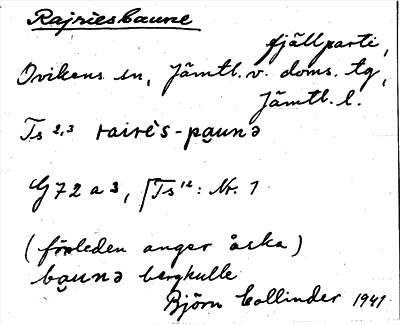 Rajriesbaune
fjällparti,
Ovikens sn, Jämtl. v. doms. tg,
Jämtl. l.
Ts 2,3 rairès-pau̯nə
G 72 a 3, Ts 12: Nr. 1
(förleden anger åska)
bau̯nə bergkulle
Björn Collinder 1941